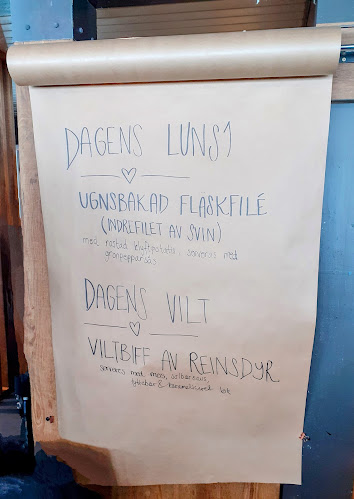 DAGENS LUNSJ
UGNSBAKAD FLASKFILÉ
(INDREFILET AV SVIN)
med rostad klyftpotatis, serveras med
grönpepparsås
DAGENS VILT
VILTBIFF AV REINSDYR
serveres med mos,
tyttebær & karamellisert løk